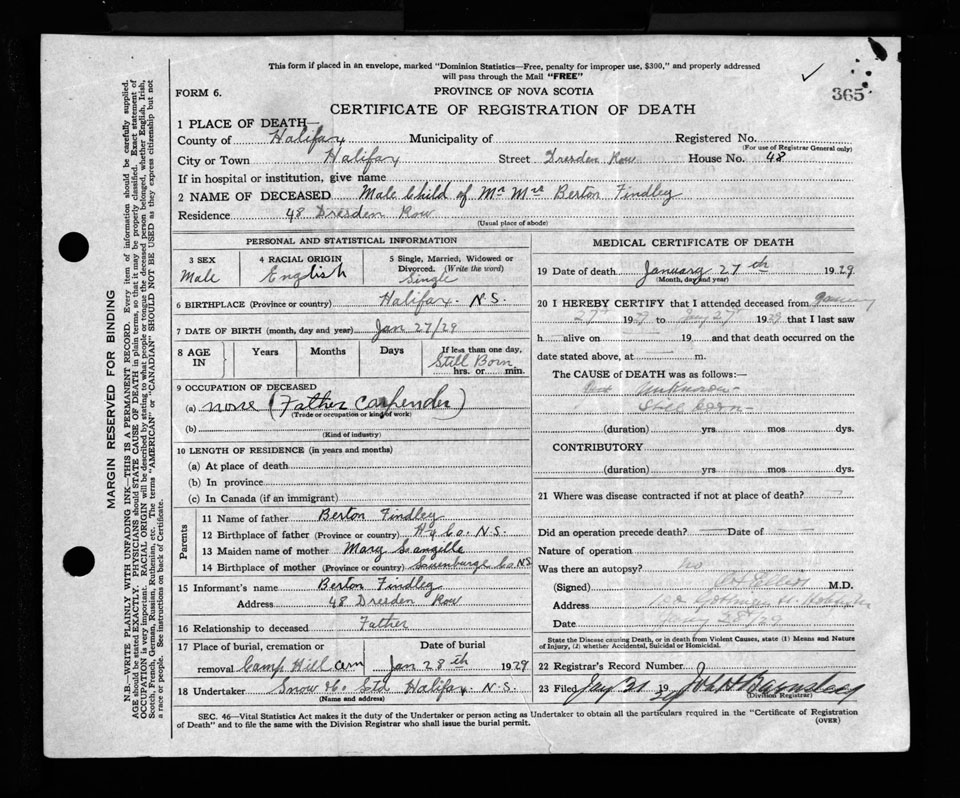 This form if placed in an envelope, marked "Dominion Statistics—Free, penalty for improper use, $300," and properly addressed
will pass through the Mail "FREE"
365
FORM 6.
PROVINCE OF NOVA SCOTIA
CERTIFICATE OF REGISTRATION OF DEATH
1 PLACE OF DEATH—
County of Halifax Municipality of Registered No.
(For use of Registrar General only)
City or Town Halifax Street Dresden Row House No. 48
If in hospital or institution, give name
2 NAME OF DECEASED Male Child of Mr Mrs Berton Findley
Residence 48 Dresden Row
(Usual place of abode)
PERSONAL AND STATISTICAL INFORMATION
3 SEX Male
4 RACIAL ORIGIN English
5 Single, Married, Widowed or Divorced. (Write the word) Single
6 BIRTHPLACE (Province or country) Halifax. N.S.
7 DATE OF BIRTH (month, day and year) Jan 27/29
8 AGE IN Years Months Days If less than one day, Still Born hrs. or min.
9 OCCUPATION OF DECEASED
(a) none (Father Carpender)
(Trade or occupation or kind of work)
(b)
(Kind of industry)
10 LENGTH OF RESIDENCE (in years and months)
(a) At place of death
(b) In province
(c) In Canada (if an immigrant)
Parents
11 Name of father Berton Findley
12 Birthplace of father (Province or country) Hx Co. N.S.
13 Maiden name of mother Mary
14 Birthplace of mother (Province or country) Lunenburgh Co NS
15 Informant's name Berton Findley
Address 48 Dresden Row
16 Relationship to deceased Father
17 Place of burial, cremation or removal Camp Hill Cem
Date of burial Jan 28th 1929
18 Undertaker Snow & Co. Ltd Halifax N.S.
(Name and address)
MEDICAL CERTIFICATE OF DEATH
19 Date of death January 27th 1929
(Month, day and year)
20 I HEREBY CERTIFY that I attended deceased from January
27th 1929 to Jany 27th 1929 that I last saw
h alive on 19 and that death occurred on the
date stated above, at m.
The CAUSE of DEATH was as follows:—
unknown
Still born
(duration) yrs mos dys.
CONTRIBUTORY
(duration) yrs mos dys.
21 Where was disease contracted if not at place of death?
Did an operation precede death? Date of
Nature of operation
Was there an autopsy? no
(Signed) M.D.
Address
Date Jany 28/29
State the Disease causing Death, or in death from Violent Causes, state (1) Means and Nature
of Injury, (2) whether Accidental, Suicidal or Homicidal.
22 Registrar's Record Number
23 Filed Jany 31 1929
(Division Registrar)
SEC. 46—Vital Statistics Act makes it the duty of the Undertaker or person acting as Undertaker to obtain all the particulars required in the "Certificate of Registration
of Death" and to file the same with the Division Registrar who shall issue the burial permit.
(OVER)
MARGIN RESERVED FOR BINDING
N.B.—WRITE PLAINLY WITH UNFADING INK—THIS IS A PERMANENT RECORD. Every item of information should be carefully supplied.
AGE should be stated EXACTLY. PHYSICIANS should STATE CAUSE OF DEATH in plain terms, so that it may be properly classified. Exact statement of
OCCUPATION is very important. RACIAL ORIGIN will be described by stating to what people or tongue the deceased person belonged, whether English, Irish,
Scotch, French, German, Russian, Ruthenian, etc. The terms "AMERICAN" or "CANADIAN" SHOULD NOT BE USED as they express citizenship but not
a race or people. See instructions on back of Certificate.